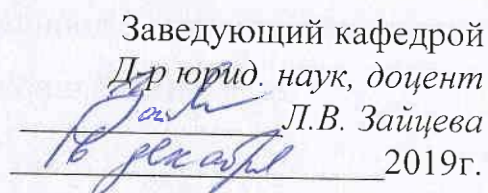 Заведующий кафедрой
Д-р юрид. наук, доцент
Л.В. Зайцева
16 декабря 2019г.